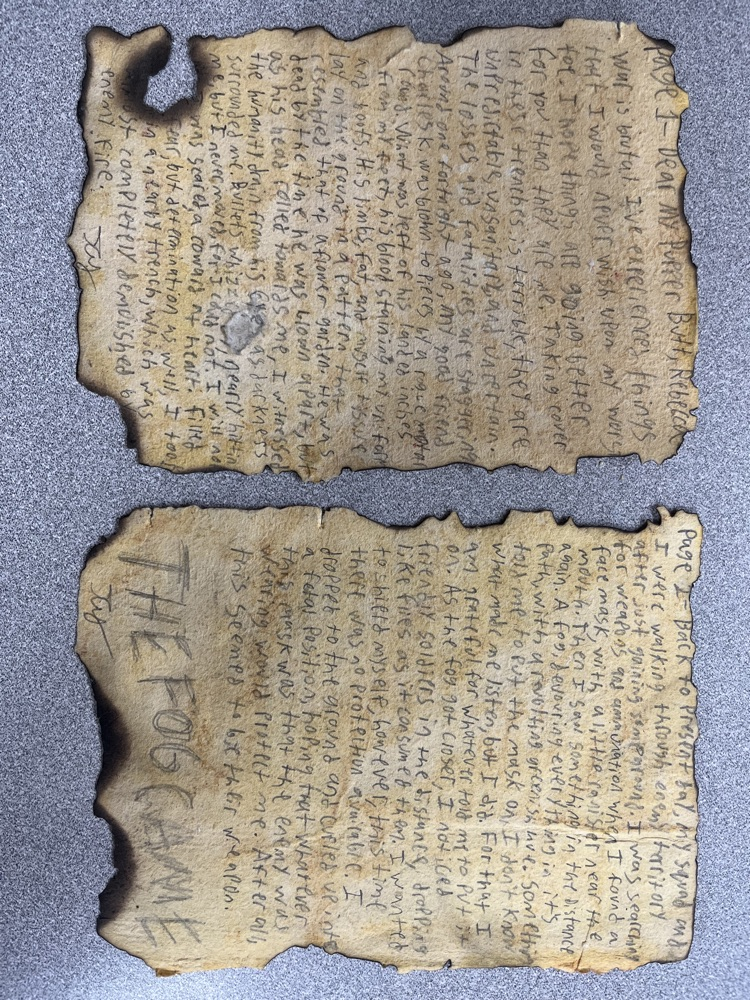 Page 1- Dear My Dutter Butt, Rebecca
War is brutal. I've experienced things
that I would never wish upon my worst
foe. I hope things are going better
for you than they are me. Taking cover
in these trenches is terrible, they are
unpredictable, unsanitary and uncertain.
The losses and fatalities are staggering.
Around one fortnight ago, my good friend
Charles K. was blown to pieces by a rogue mortar
round. What was left of his landed inches
from my feet, his blood staining my uniform
and boots. His limbs, for one short passing
lay on the ground in a pattern that
resembled that of a flower garden. He was
dead by the time he was blown apart, but
as his head rolled towards me, I witnessed
the humanity drain from his as darkness
surrounded me. Bullets whiz nearly hitting
me, but I never cared for I do not. I will not
was scared, a coward at heart filled
fears but determination as well. I took
in a nearby trench, which was
completely demolished by
enemy fire.
Jay
Page 2- Back to present day, my squad and
I were walking through enemy territory
after just gaining some ground. I was searching
for weapons and ammunition when I found a
face mask, with a little canister near the
mouth. Then I saw something in the distance
again. A fog, devouring everything in it's
path, with a revolting green hue. Something
told me to put the mask on, I don't know
what made me listen but I did. For that I
am grateful for whatever told me to put it
on. As the fog got closer, I noticed
friendly soldiers in the distance, dropping
like flies as it consumed them. I wanted
to shield myself, however, this time
there was no protection available. I
dropped to the ground and curled up into
a fetal position, hoping that whatever
this mask was that the enemy was
wearing would protect me. After all,
this seemed to be their weapon.
THE FOG CAME
Jay